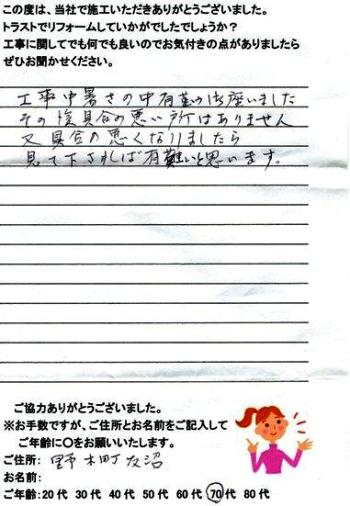 この度は、当社で施工いただきありがとうございました。
トラストでリフォームしていかがでしたでしょうか？
工事に関してでも何でも良いのでお気付きの点がありましたら
ぜひお聞かせください。
工事中暑さの中有難う御座いました
その後具合の悪い所はありません
又具合の悪くなりましたら
見て下されば有難いと思います。
ご協力ありがとうございました。
※お手数ですが、ご住所とお名前をご記入して
ご年齢に〇をお願いいたします。
ご住所: 野木町友沼
お名前:
ご年齢:20代 30代 40代 50代 60代 70代 80代